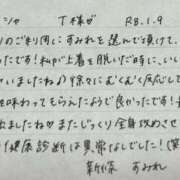 シャ T様ｶﾞ R8.1.9
りのご利用にすみれを選んで頂けて
たです！私が上着を脱いだ時に、付い
いましたね♪徐々にむくむく反応して
味わってもらえたようで良かったです！最
出ましたね♡またじっくり全身攻めさせ
健康診断は異常なしでした！
新條 すみれ